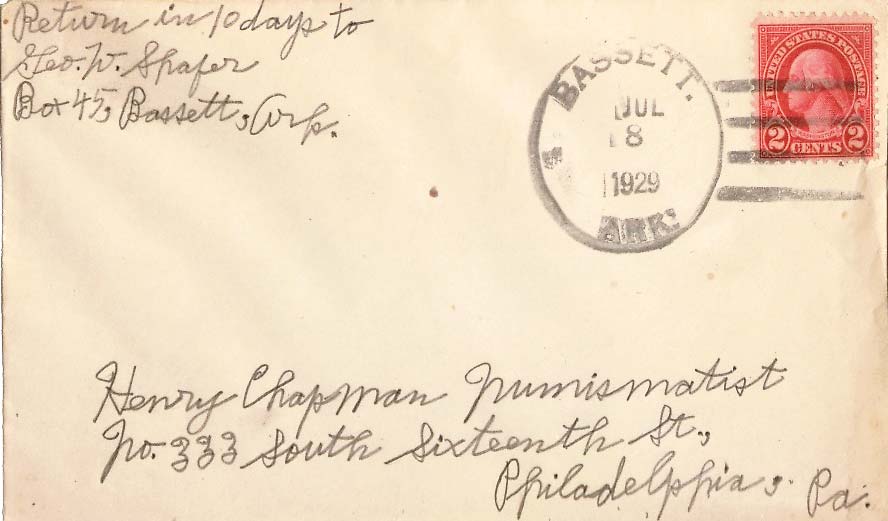 Return in 10 days to
Geo. W. Shafer
Box 45, Bassett, Ark.
BASSETT.
JUL
8
1929
ARK.
UNITED STATES POSTAGE
2 CENTS 2
Henry Chapman Numismatist
No. 333 South Sixteenth St.,
Philadelphia, Pa.